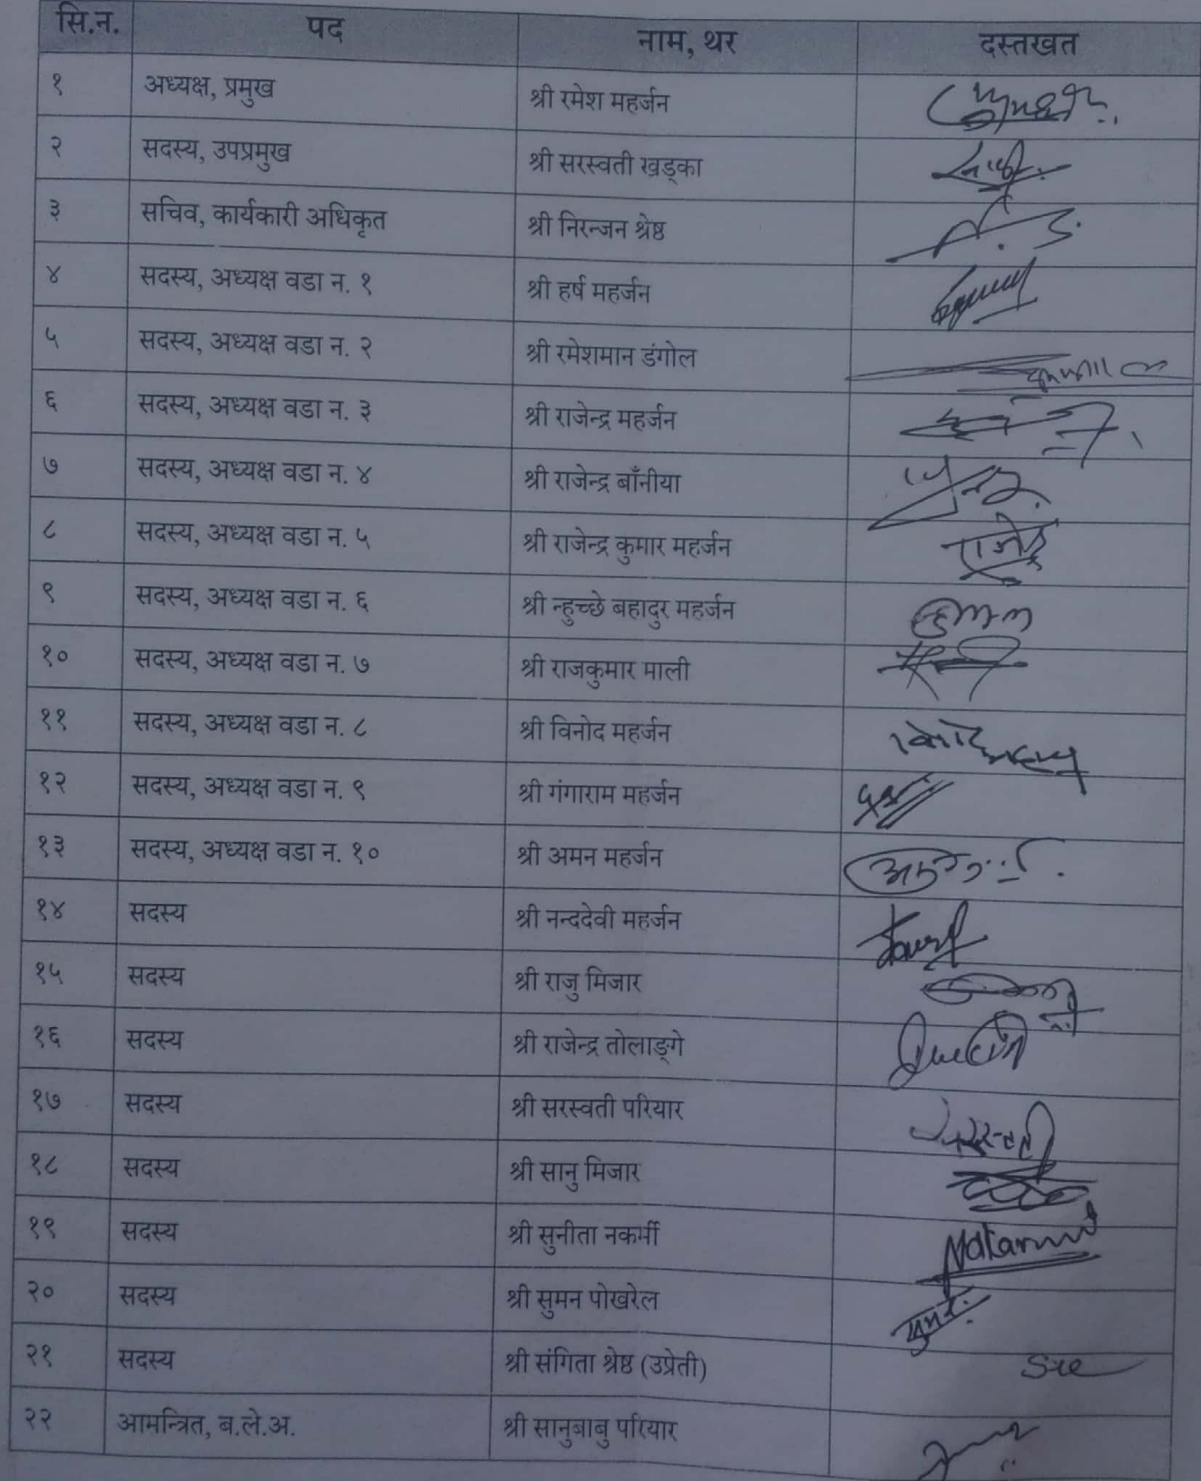 सि.न. पद नाम, थर दस्तखत
१ अध्यक्ष, प्रमुख श्री रमेश महर्जन
२ सदस्य, उपप्रमुख श्री सरस्वती खड्का
३ सचिव, कार्यकारी अधिकृत श्री निरन्जन श्रेष्ठ
४ सदस्य, अध्यक्ष वडा न. १ श्री हर्ष महर्जन
५ सदस्य, अध्यक्ष वडा न. २ श्री रमेशमान डंगोल
६ सदस्य, अध्यक्ष वडा न. ३ श्री राजेन्द्र महर्जन
७ सदस्य, अध्यक्ष वडा न. ४ श्री राजेन्द्र बाँनीया
८ सदस्य, अध्यक्ष वडा न. ५ श्री राजेन्द्र कुमार महर्जन राजेन्द्र
९ सदस्य, अध्यक्ष वडा न. ६ श्री न्हुच्छे बहादुर महर्जन
१० सदस्य, अध्यक्ष वडा न. ७ श्री राजकुमार माली
११ सदस्य, अध्यक्ष वडा न. ८ श्री विनोद महर्जन
१२ सदस्य, अध्यक्ष वडा न. ९ श्री गंगाराम महर्जन
१३ सदस्य, अध्यक्ष वडा न. १० श्री अमन महर्जन
१४ सदस्य श्री नन्ददेवी महर्जन
१५ सदस्य श्री राजु मिजार
१६ सदस्य श्री राजेन्द्र तोलाङ्गे
१७ सदस्य श्री सरस्वती परियार
१८ सदस्य श्री सानु मिजार
१९ सदस्य श्री सुनीता नकर्मी Nakarmi
२० सदस्य श्री सुमन पोखरेल
२१ सदस्य श्री संगिता श्रेष्ठ (उप्रेती)
२२ आमन्त्रित, ब.ले.अ. श्री सानुबाबु परियार